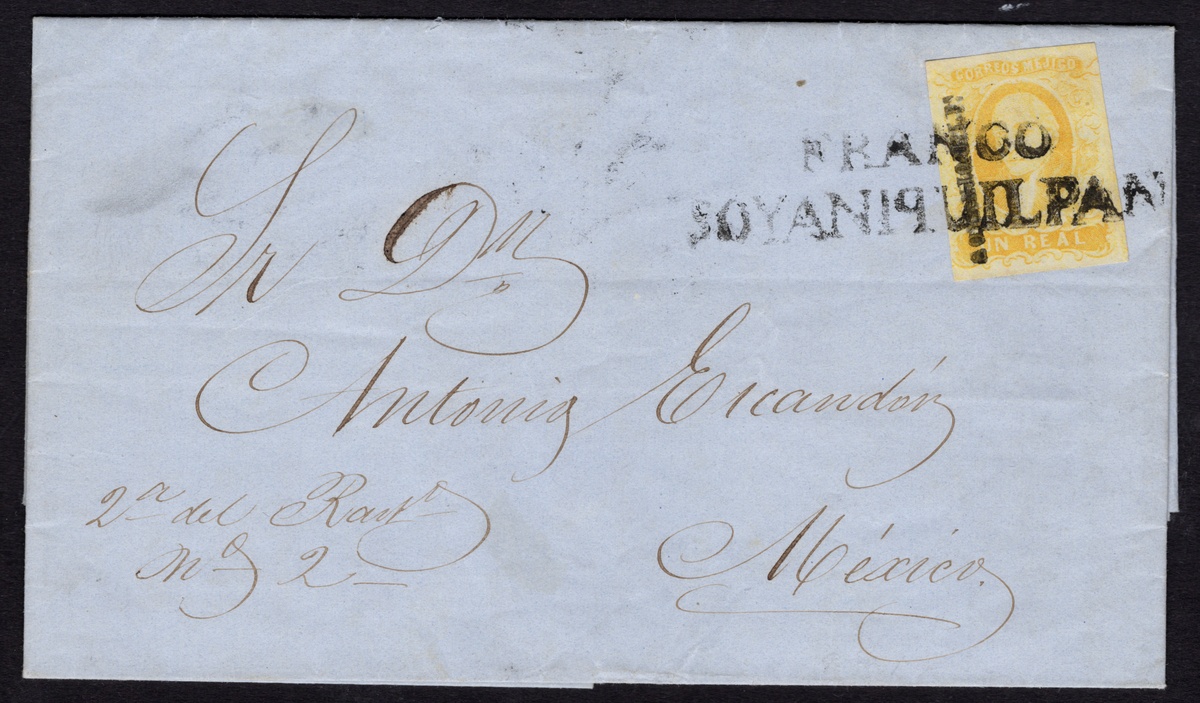 CORREOS MEJICO
FRANCO
SOYANIQUILPAN
UN REAL
Sr Dn
Antonio Escandón
2a del Rasto
No 2
México.